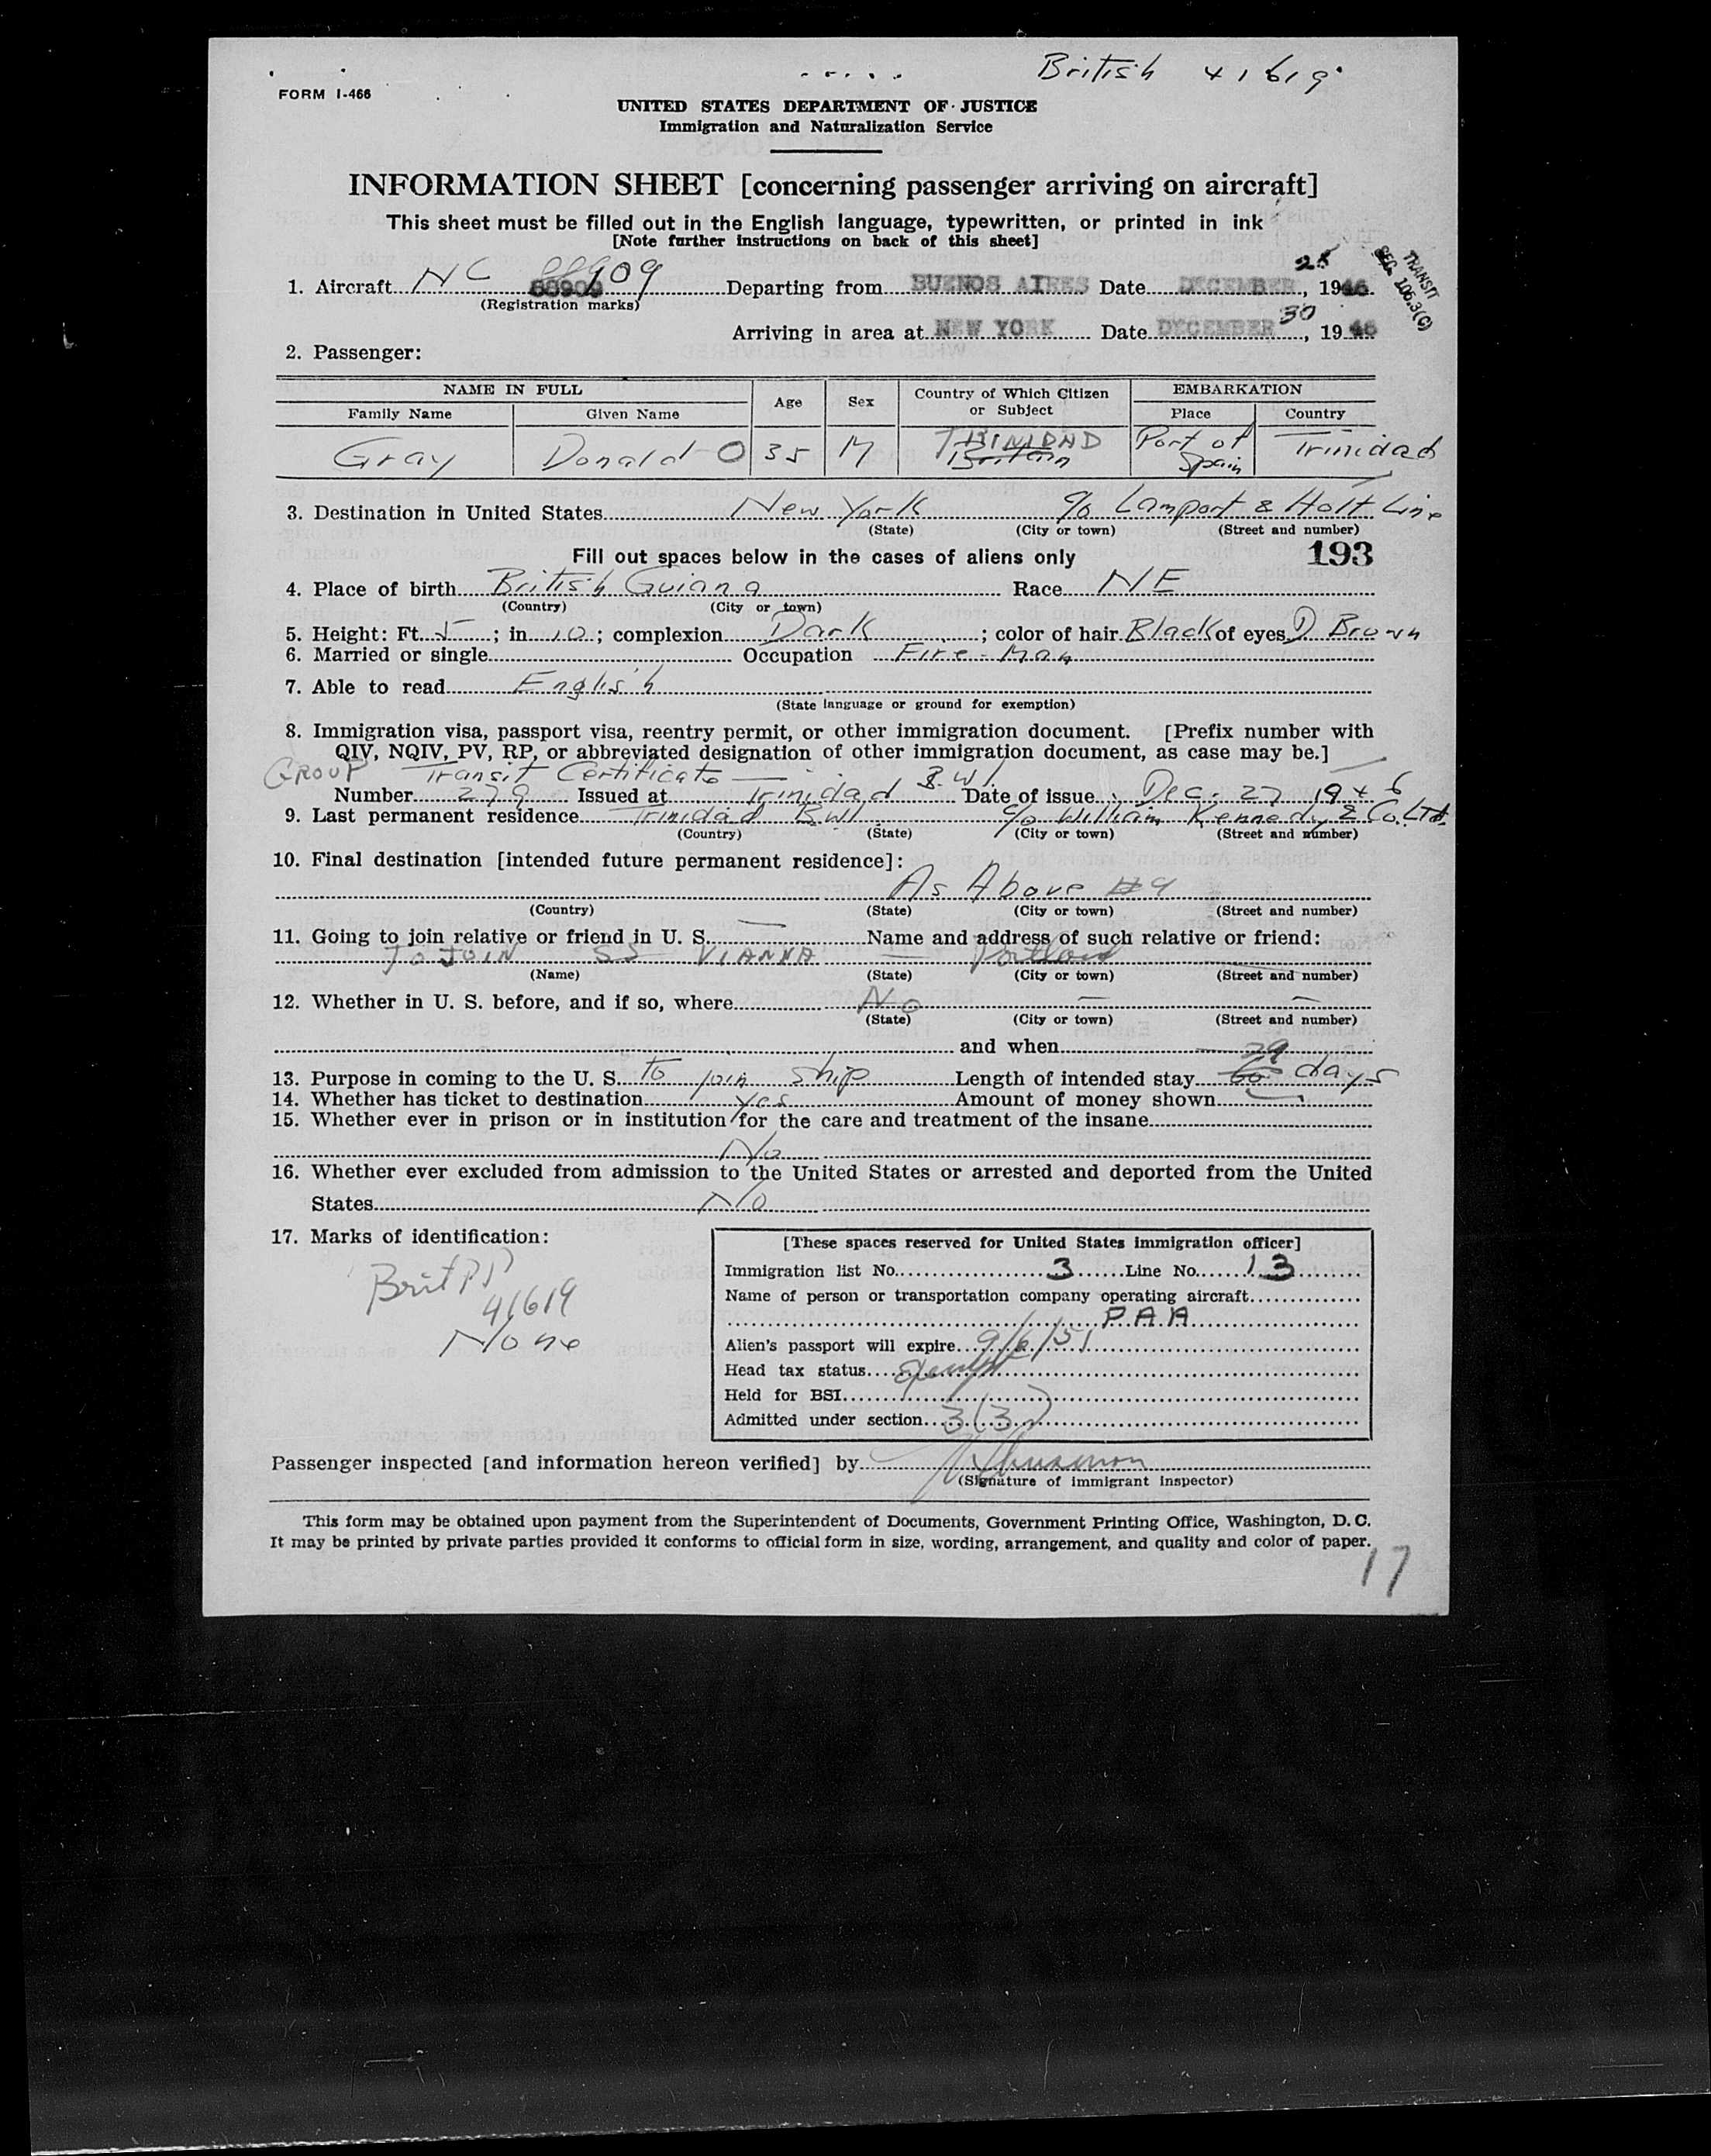 British 41619
FORM I-466
UNITED STATES DEPARTMENT OF JUSTICE
Immigration and Naturalization Service
INFORMATION SHEET [concerning passenger arriving on aircraft]
This sheet must be filled out in the English language, typewritten, or printed in ink
[Note further instructions on back of this sheet]
TRANSIT
SEC. 106.3(C)
1. Aircraft NC 88909 Departing from BUENOS AIRES Date DECEMBER 28, 1946
(Registration marks)
Arriving in area at NEW YORK Date DECEMBER 30, 1946
2. Passenger:
NAME IN FULL Age Sex Country of Which Citizen or Subject EMBARKATION
Family Name Given Name Place Country
Gray Donald O 35 M TRINIDAD Britain Port of Spain Trinidad
3. Destination in United States New York c/o Lamport & Holt Line
(State) (City or town) (Street and number)
Fill out spaces below in the cases of aliens only 193
4. Place of birth British Guiana Race NE
(Country) (City or town)
5. Height: Ft. 5; in. 10; complexion Dark; color of hair Black of eyes D Brown
6. Married or single Occupation Fire-Man
7. Able to read English
(State language or ground for exemption)
8. Immigration visa, passport visa, reentry permit, or other immigration document. [Prefix number with
QIV, NQIV, PV, RP, or abbreviated designation of other immigration document, as case may be.]
GROUP Transit Certificate
Number 279 Issued at Trinidad B.W.I. Date of issue Dec. 27 1946
9. Last permanent residence Trinidad BWI c/o William Kennedy & Co. Ltd.
(Country) (State) (City or town) (Street and number)
10. Final destination [intended future permanent residence]:
As Above #9
(Country) (State) (City or town) (Street and number)
11. Going to join relative or friend in U. S. — Name and address of such relative or friend:
TO JOIN SS VIANNA — Portland
(Name) (State) (City or town) (Street and number)
12. Whether in U. S. before, and if so, where No — —
(State) (City or town) (Street and number)
and when —
13. Purpose in coming to the U. S. To join ship Length of intended stay 60 29 days
14. Whether has ticket to destination Yes Amount of money shown —
15. Whether ever in prison or in institution for the care and treatment of the insane
No
16. Whether ever excluded from admission to the United States or arrested and deported from the United
States No
17. Marks of identification:
Brit PP
41619
None
[These spaces reserved for United States immigration officer]
Immigration list No. 3 Line No. 13
Name of person or transportation company operating aircraft
PAA
Alien's passport will expire 9/6/51
Head tax status Exempt
Held for BSI
Admitted under section 3(3)
Passenger inspected [and information hereon verified] by
(Signature of immigrant inspector)
This form may be obtained upon payment from the Superintendent of Documents, Government Printing Office, Washington, D. C.
It may be printed by private parties provided it conforms to official form in size, wording, arrangement, and quality and color of paper.
17